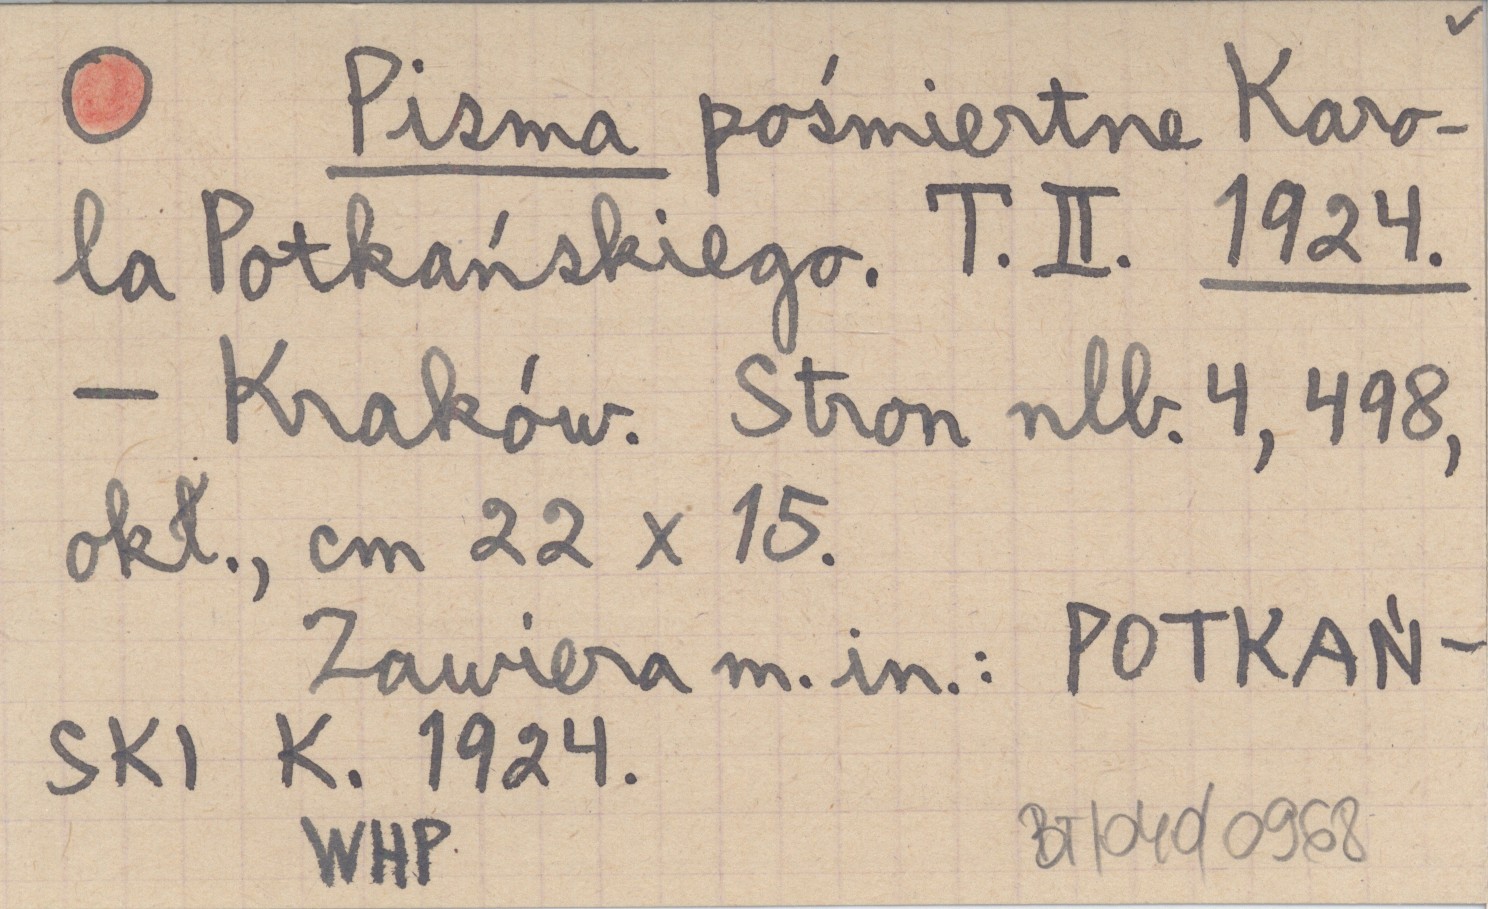 Pisma pośmiertne Karo-
la Potkańskiego. T. II. 1924.
— Kraków. Stron nlb. 4, 498,
okł., cm 22 x 15.
Zawiera m. in.: POTKAŃ-
SKI K. 1924.
WHP
BT/040/0968